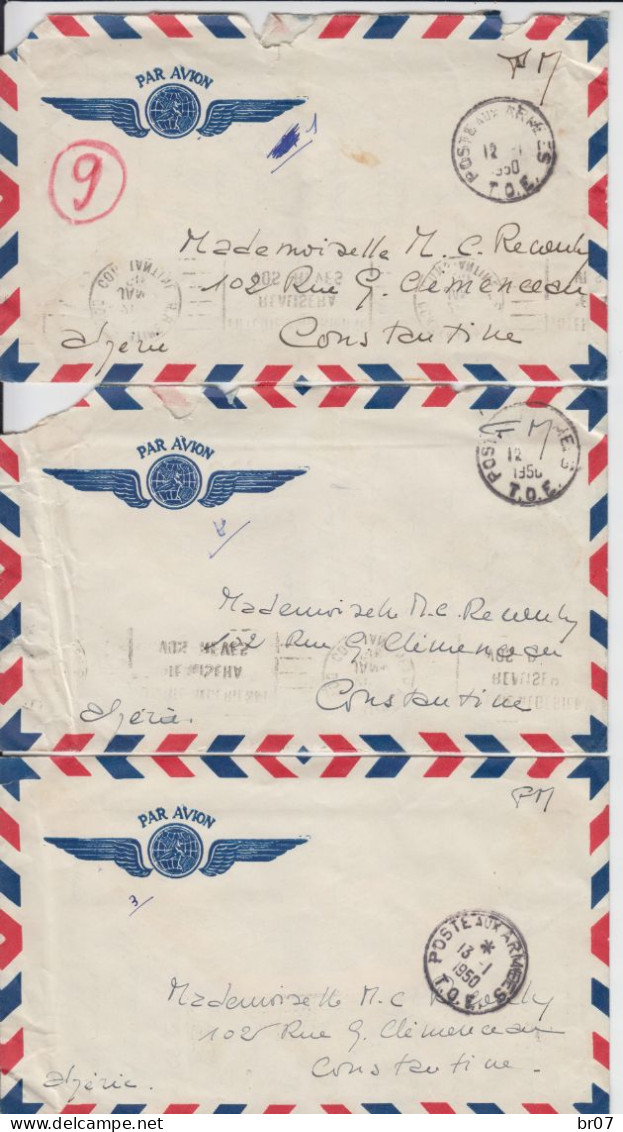 PAR AVION
FM
POSTE AUX ARMEES
12 -1
1950
T.O.E.
1
9
Mademoiselle M. C. Recouly
102 Rue G. Clémenceau
Constantine
algérie
PAR AVION
FM
12
1950
T.O.E.
Mademoiselle M. C. Recouly
102 Rue G. Clémenceau
Constantine
algérie.
PAR AVION
FM
3
POSTE AUX ARMEES
*
13 -1
1950
T.O.E.
Mademoiselle M. C Recouly
102 Rue G. Clémenceau
Constantine.
algérie.
delcampe.net
br07